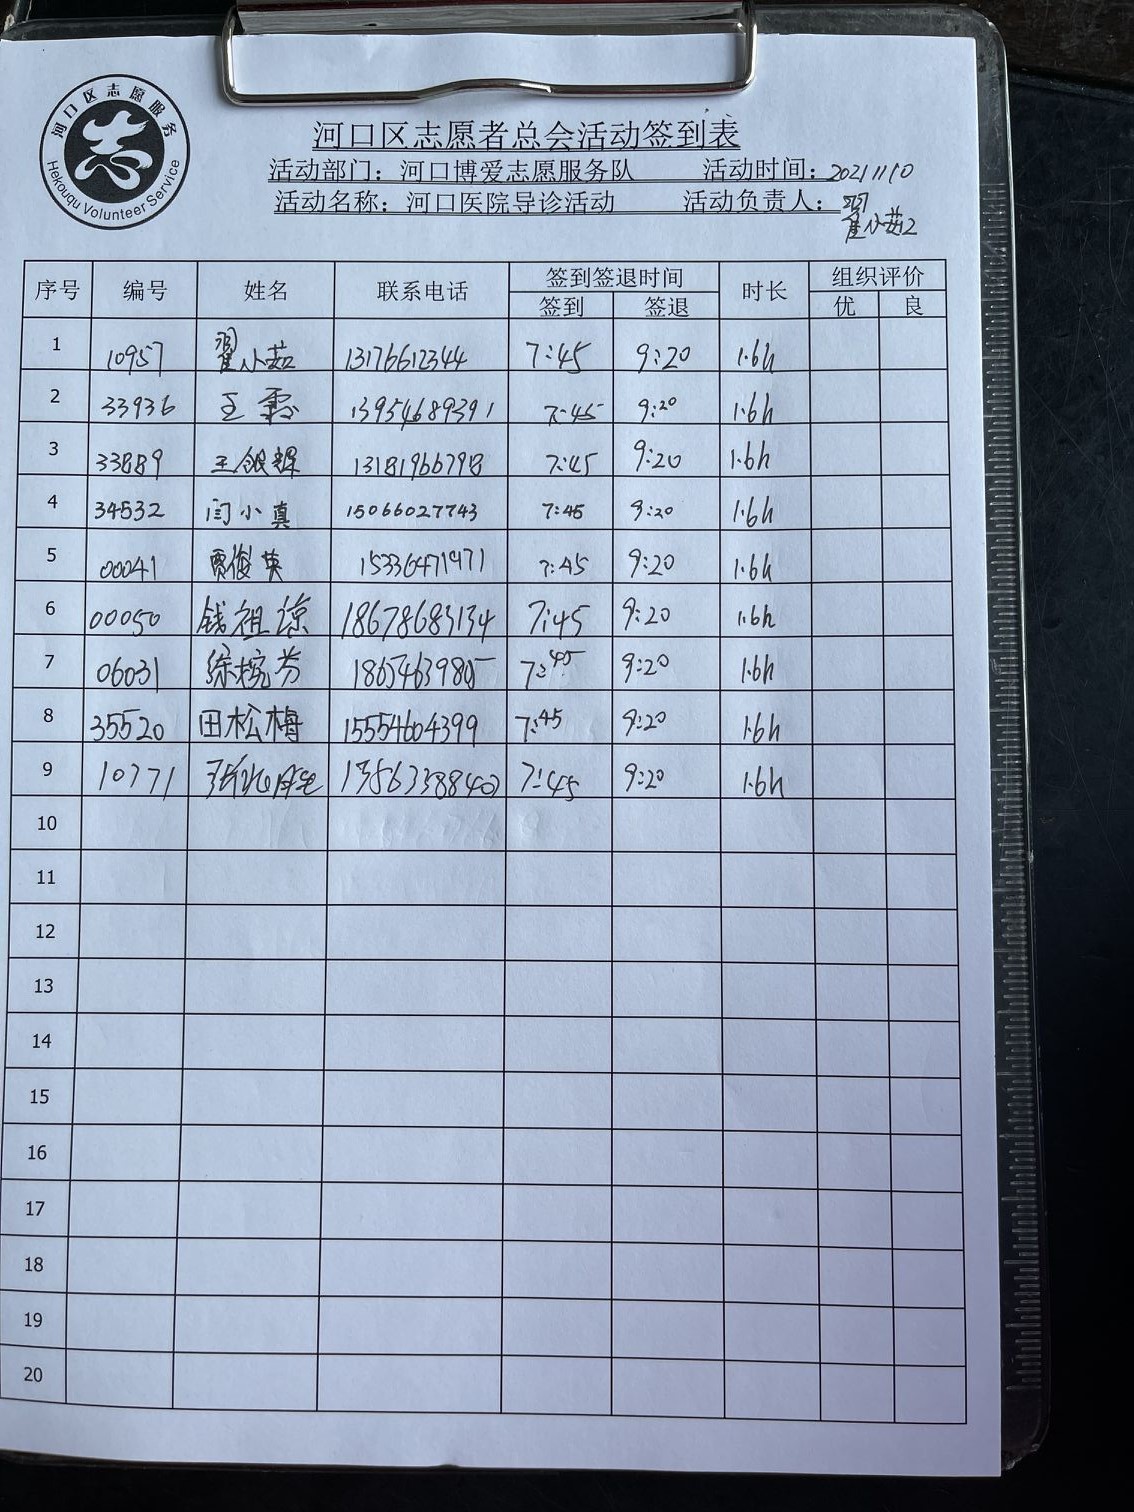 河口区志愿服务
Hekouqu Volunteer Service
河口区志愿者总会活动签到表
活动部门：河口博爱志愿服务队 活动时间：20211110
活动名称：河口医院导诊活动 活动负责人：翟小茹
序号 编号 姓名 联系电话 签到签退时间 时长 组织评价
签到 签退 优 良
1 10957 翟小茹 13176612344 7:45 9:20 1.6h
2 33936 王霞 13954689391 7:45 9:20 1.6h
3 33889 王银辉 13181966798 7:45 9:20 1.6h
4 34532 闫小真 15066027743 7:45 9:20 1.6h
5 00041 贾俊英 15336471971 7:45 9:20 1.6h
6 00050 钱祖谅 18678683134 7:45 9:20 1.6h
7 06031 徐婉芳 7:45 9:20 1.6h
8 35520 田松梅 15554604399 7:45 9:20 1.6h
9 10771 7:45 9:20 1.6h
10
11
12
13
14
15
16
17
18
19
20